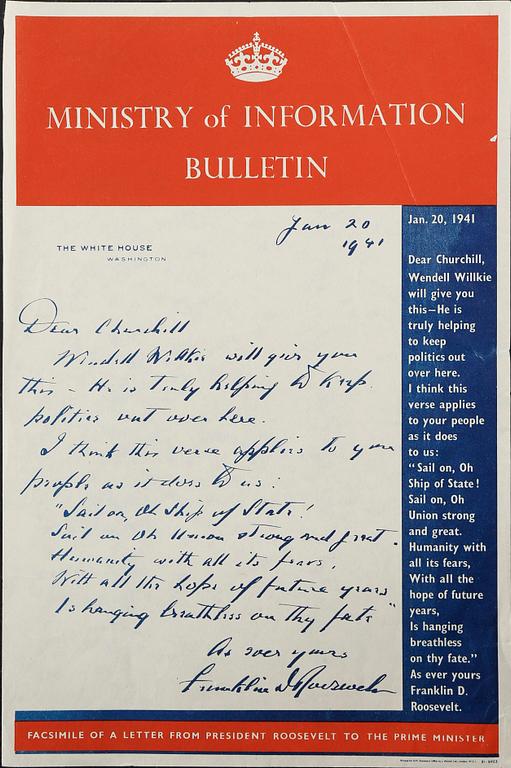 MINISTRY of INFORMATION
BULLETIN
THE WHITE HOUSE
WASHINGTON
Jan 20
1941
Dear Churchill
Wendell Willkie will give you
this – He is truly helping to keep
politics out over here.
I think this verse applies to you
people as it does to us:
"Sail on, Oh Ship of State!
Sail on Oh Union strong and great.
Humanity with all its fears,
With all the hope of future years
Is hanging breathless on thy fate"
As ever yours
Franklin D Roosevelt
Jan. 20, 1941
Dear Churchill,
Wendell Willkie
will give you
this—He is
truly helping
to keep
politics out
over here.
I think this
verse applies
to your people
as it does
to us:
"Sail on, Oh
Ship of State!
Sail on, Oh
Union strong
and great.
Humanity with
all its fears,
With all the
hope of future
years,
Is hanging
breathless
on thy fate."
As ever yours
Franklin D.
Roosevelt.
FACSIMILE OF A LETTER FROM PRESIDENT ROOSEVELT TO THE PRIME MINISTER